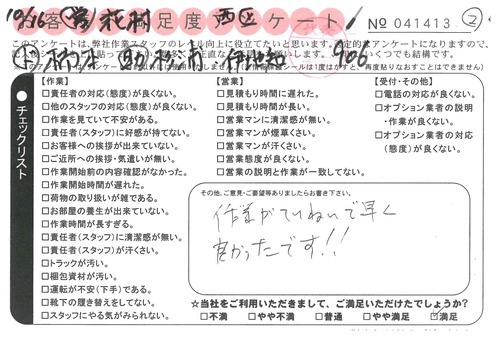 10/16 客 足度 西区 ケート!
No 041413 ②
このアンケートは、弊社作業スタッフのレベル向上に役立てたいと思います。
906
チェックリスト
【作業】
□責任者の対応(態度)が良くない。
□他のスタッフの対応(態度)が良くない。
□作業を見ていて不安がある。
□責任者(スタッフ)に好感が持てない。
□お客様への挨拶が出来ていない。
□ご近所への挨拶・気遣いが無い。
□作業開始前の内容確認がなかった。
□作業開始時間が遅れた。
□荷物の取り扱いが雑である。
□お部屋の養生が出来ていない。
□作業時間が長すぎる。
□責任者(スタッフ)に清潔感が無い。
□責任者(スタッフ)が汗くさい。
□トラックが汚い。
□梱包資材が汚い。
□運転が不安(下手)である。
□靴下の履き替えをしてない。
□スタッフにやる気がみられない。
【営業】
□見積もり時間に遅れた。
□見積もり時間が長い。
□営業マンに清潔感が無い。
□営業マンが煙草くさい。
□営業マンが汗くさい。
□営業態度が良くない。
□営業の説明と作業が一致してない。
【受付・その他】
□電話の対応が良くない。
□オプション業者の説明
・作業が良くない。
□オプション業者の対応
(態度)が良くない。
その他、ご意見・ご要望等ありましたらお書き下さい。
作業がていねいで早く
良かったです!!
☆当社をご利用いただきまして、ご満足いただけたでしょうか?
□不満 □やや不満 □普通 □やや満足 ☑満足